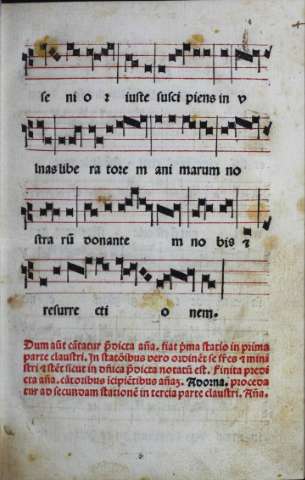 se ni o ꝛ iuste susci piens in v
lnas libe ra tore m ani marum no
stra rū donante m no bis ⁊
resurre cti o nem.
Dum aūt cātatur p̄dicta aña. fiat p̄ma statio in prima
parte claustri. In statōibus vero ordinēt se frēs ⁊ mini
stri ⁊ stēt sicut in dñica p̄dicta notatū est. Finita predi
cta aña. cātoribus icipiētibus añaz. Adorna. proceda
tur ad secundam stationē in tercia parte claustri. Aña.